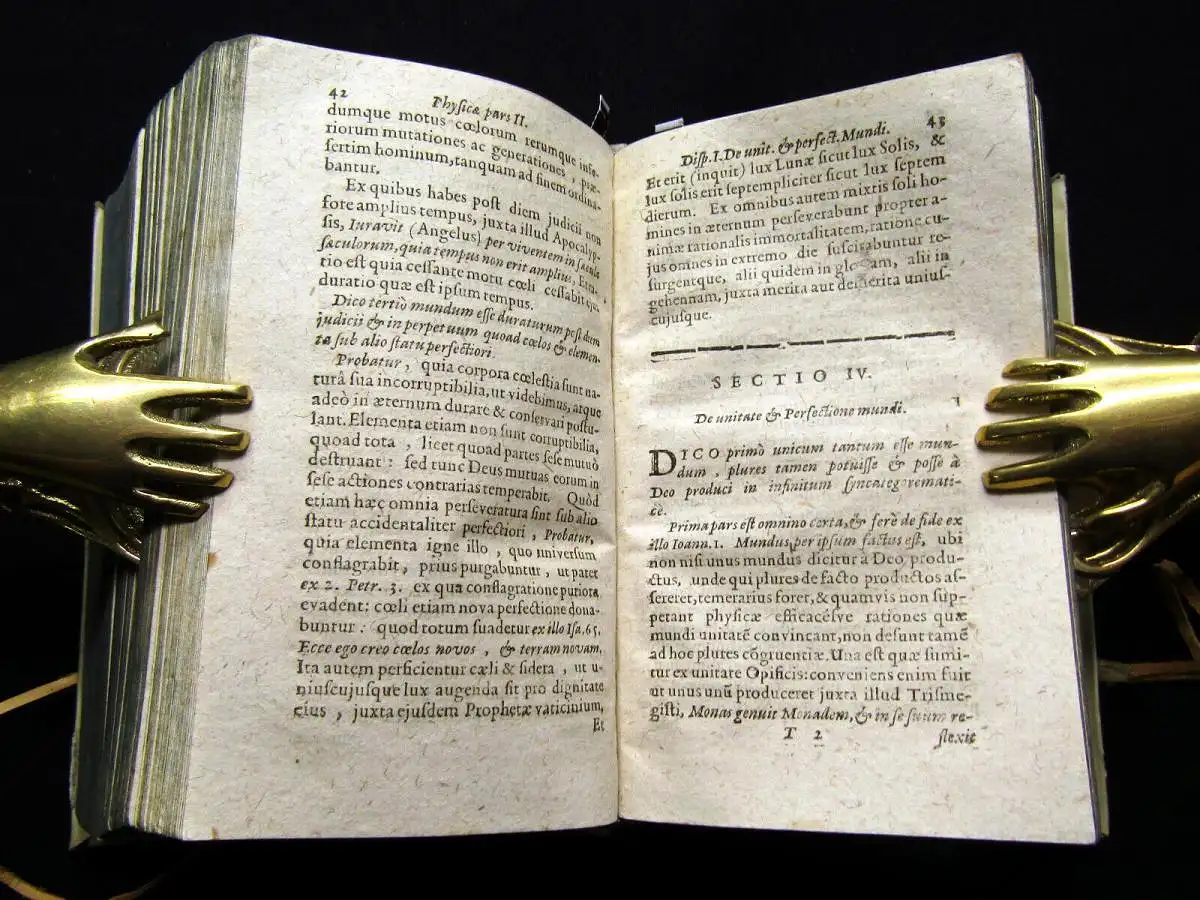 42
Physicæ pars II.
dumque motus cœlorum rerumque infe-
riorum mutationes ac generationes, præ-
sertim hominum, tanquam ad finem ordina-
bantur.
Ex quibus habes post diem judicii non
fore amplius tempus, juxta illud Apocalyp-
sis, Iuravit (Angelus) per viventem in sæcula
sæculorum, quia tempus non erit amplius, Et ra-
tio est quia cessante motu cœli cessabit ejus
duratio quæ est ipsum tempus.
Dico tertiò mundum esse duraturum post diem
judicii & in perpetuum quoad cœlos & elemen-
ta sub alio statu perfectiori.
Probatur, quia corpora cœlestia sunt na-
turâ sua incorruptibilia, ut videbimus, atque
adeò in æternum durare & conservari postu-
lant. Elementa etiam non sunt corruptibilia,
quoad tota, licet quoad partes sese mutuò
destruant: sed tunc Deus mutuas eorum in
sese actiones contrarias temperabit. Quòd
etiam hæc omnia perseveratura sint sub alio
statu accidentaliter perfectiori, Probatur,
quia elementa igne illo, quo universum
conflagrabit, prius purgabuntur, ut patet
ex 2. Petr. 3. ex qua conflagratione puriora
evadent: cœli etiam nova perfectione dona-
buntur: quod totum suadetur ex illo Isa. 65.
Ecce ego creo cœlos novos, & terram novam.
Ita autem perficientur cæli & sidera, ut u-
niuscujusque lux augenda sit pro dignitate
eius, juxta ejusdem Prophetæ vaticinium,
Et
Disp. I. De unit. & perfect. Mundi.
43
Et erit (inquit) lux Lunæ sicut lux Solis, &
lux solis erit septempliciter sicut lux septem
dierum. Ex omnibus autem mixtis soli ho-
mines in æternum perseverabunt propter a-
nimæ rationalis immortalitatem, ratione cu-
jus omnes in extremo die suscitabuntur re-
surgentque, alii quidem in gloriam, alii in
gehennam, juxta merita aut demerita unius-
cujusque.
SECTIO IV.
De unitate & Perfectione mundi.
DICO primò unicum tantum esse mun-
dum, plures tamen potuisse & posse à
Deo produci in infinitum syncategoremati-
cè.
Prima pars est omnino certa, & ferè de fide ex
illo Ioann. 1. Mundus per ipsum factus est, ubi
non nisi unus mundus dicitur à Deo produ-
ctus, unde qui plures de facto productos as-
sereret, temerarius foret, & quamvis non sup-
petant physicæ efficacésve rationes quæ
mundi unitatē convincant, non desunt tamē
ad hoc plures cōgruentiæ. Una est quæ sumi-
tur ex unitate Opificis: conveniens enim fuit
ut unus unū produceret juxta illud Trisme-
gisti, Monas genuit Monadem, & in se suum re-
T 2
flexit